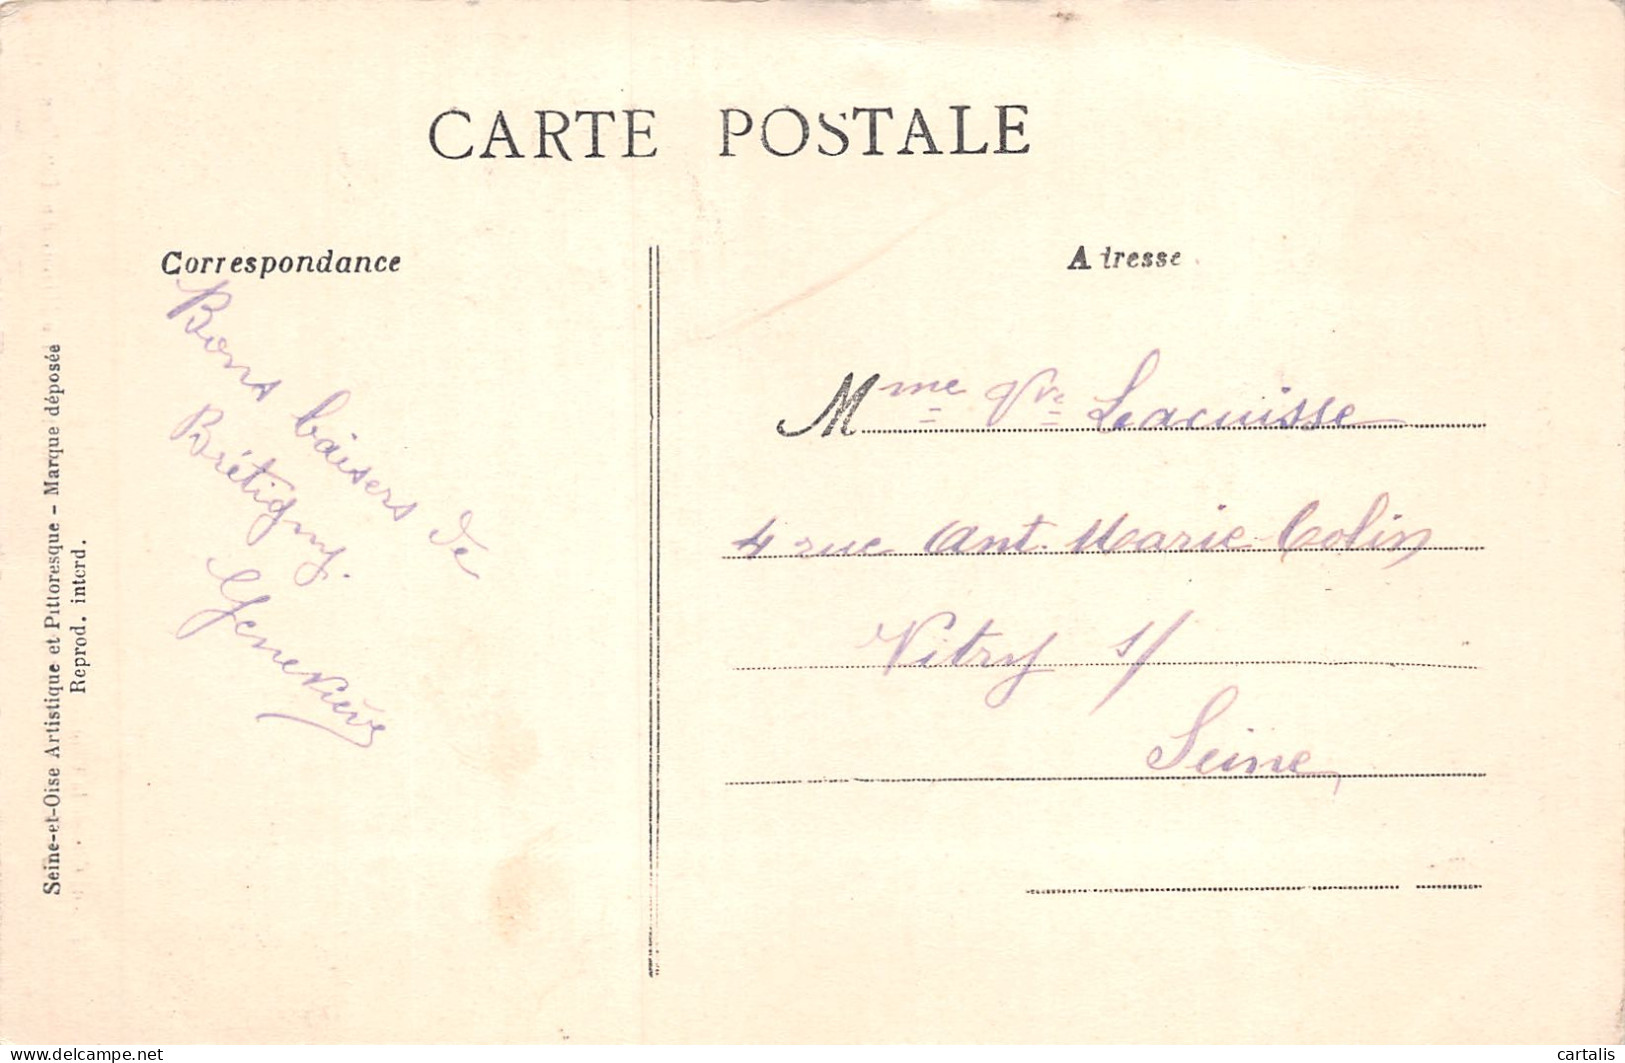 CARTE POSTALE
Correspondance
Adresse
Bons baisers de
Brétigny.
Geneviève
Mme Vve Lacuisse
4 rue Ant. Marie Colin
Vitry s/
Seine
Seine-et-Oise Artistique et Pittoresque - Marque déposée
Reprod. interd.
delcampe.net
cartalis